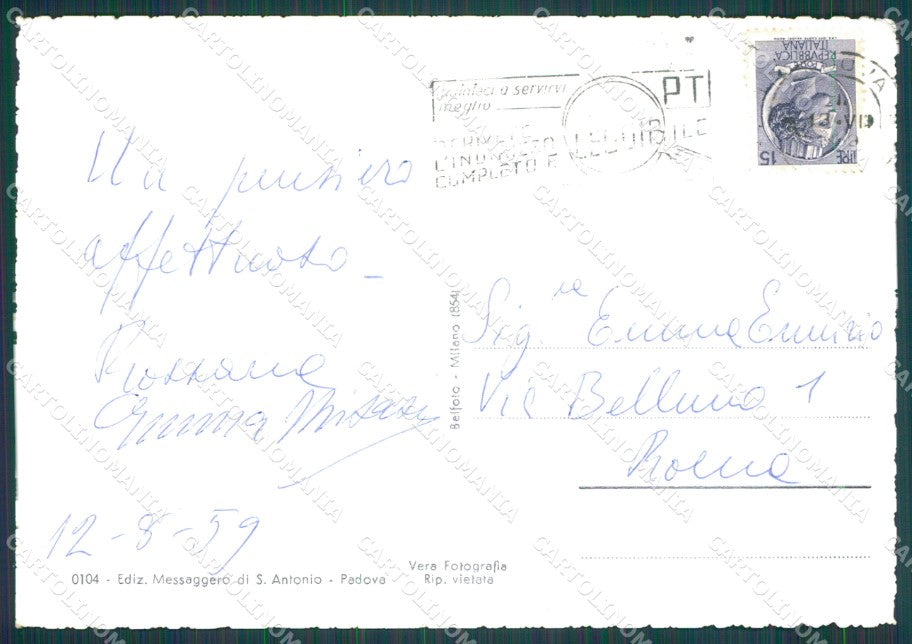 Aiutateci a servirvi
meglio
PT
L'INDIRIZZO
COMPLETO E LEGGIBILE
REPVBBLICA
ITALIANA
LIRE 15
Un pensiero
affettuoso -
Rossana
Emma
12-8-59
Sig.ra Emma Ennizio
Via Belluno 1
Roma
Belfoto - Milano (854)
0104 - Ediz. Messaggero di S. Antonio - Padova
Vera Fotografia
Rip. vietata
CARTOLINOMANIA